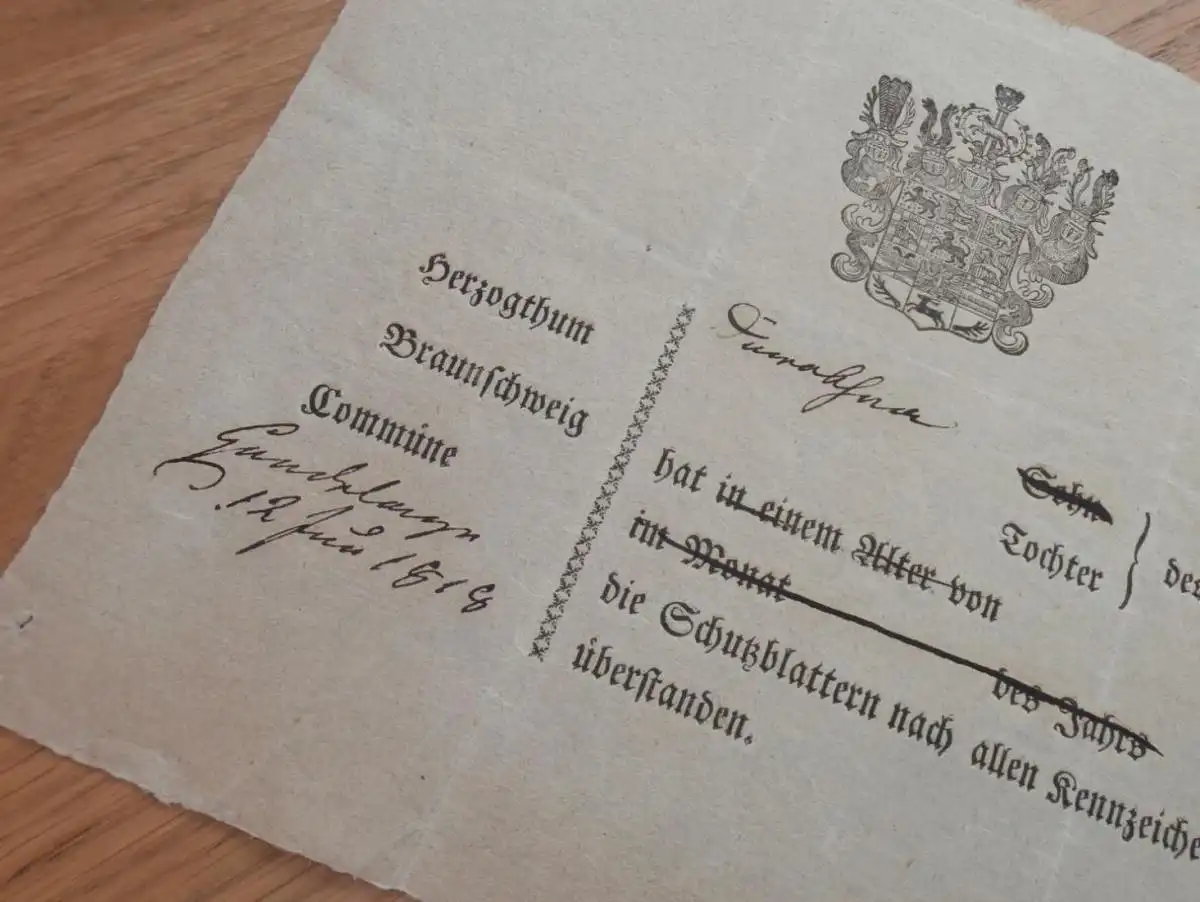 Herzogthum
Braunschweig
Commüne
12 Juni 1818
Sohn
Tochter
des
hat in einem Alter von
im Monat des Jahrs
die Schutzblattern nach allen Kennzeiche
überstanden.